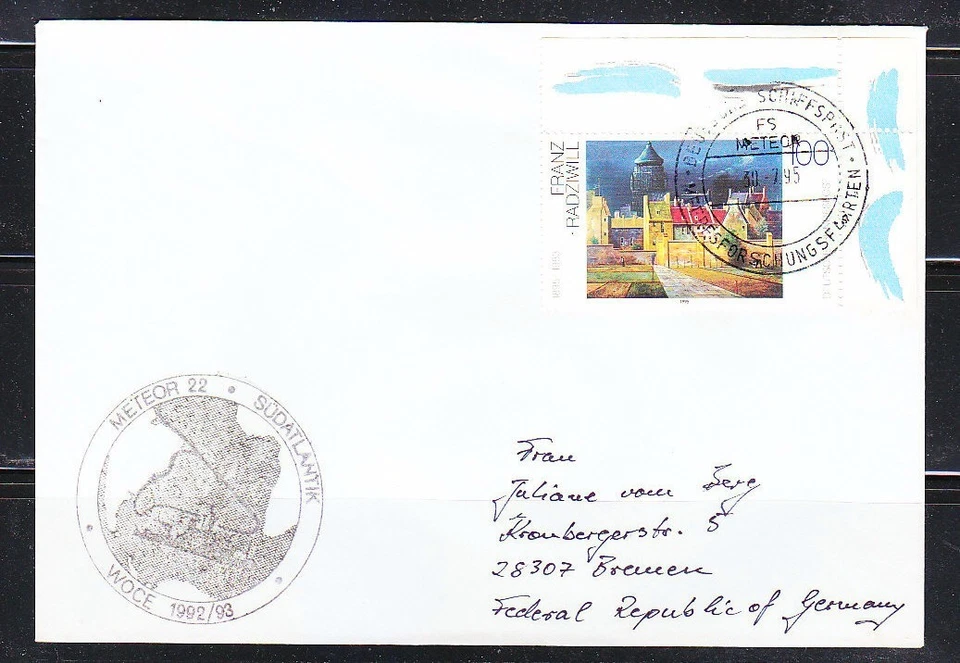 FRANZ
RADZIWILL
100
1895 1983
1995
DEUTSCHE SCHIFFSPOST
FS
METEOR
30.-7.95
MEERESFORSCHUNGSFAHRTEN
METEOR 22 • SÜDATLANTIK
WOCE 1992/93
Frau
Juliane vom Berg
Kronbergerstr. 5
28307 Bremen
Federal Republic of Germany